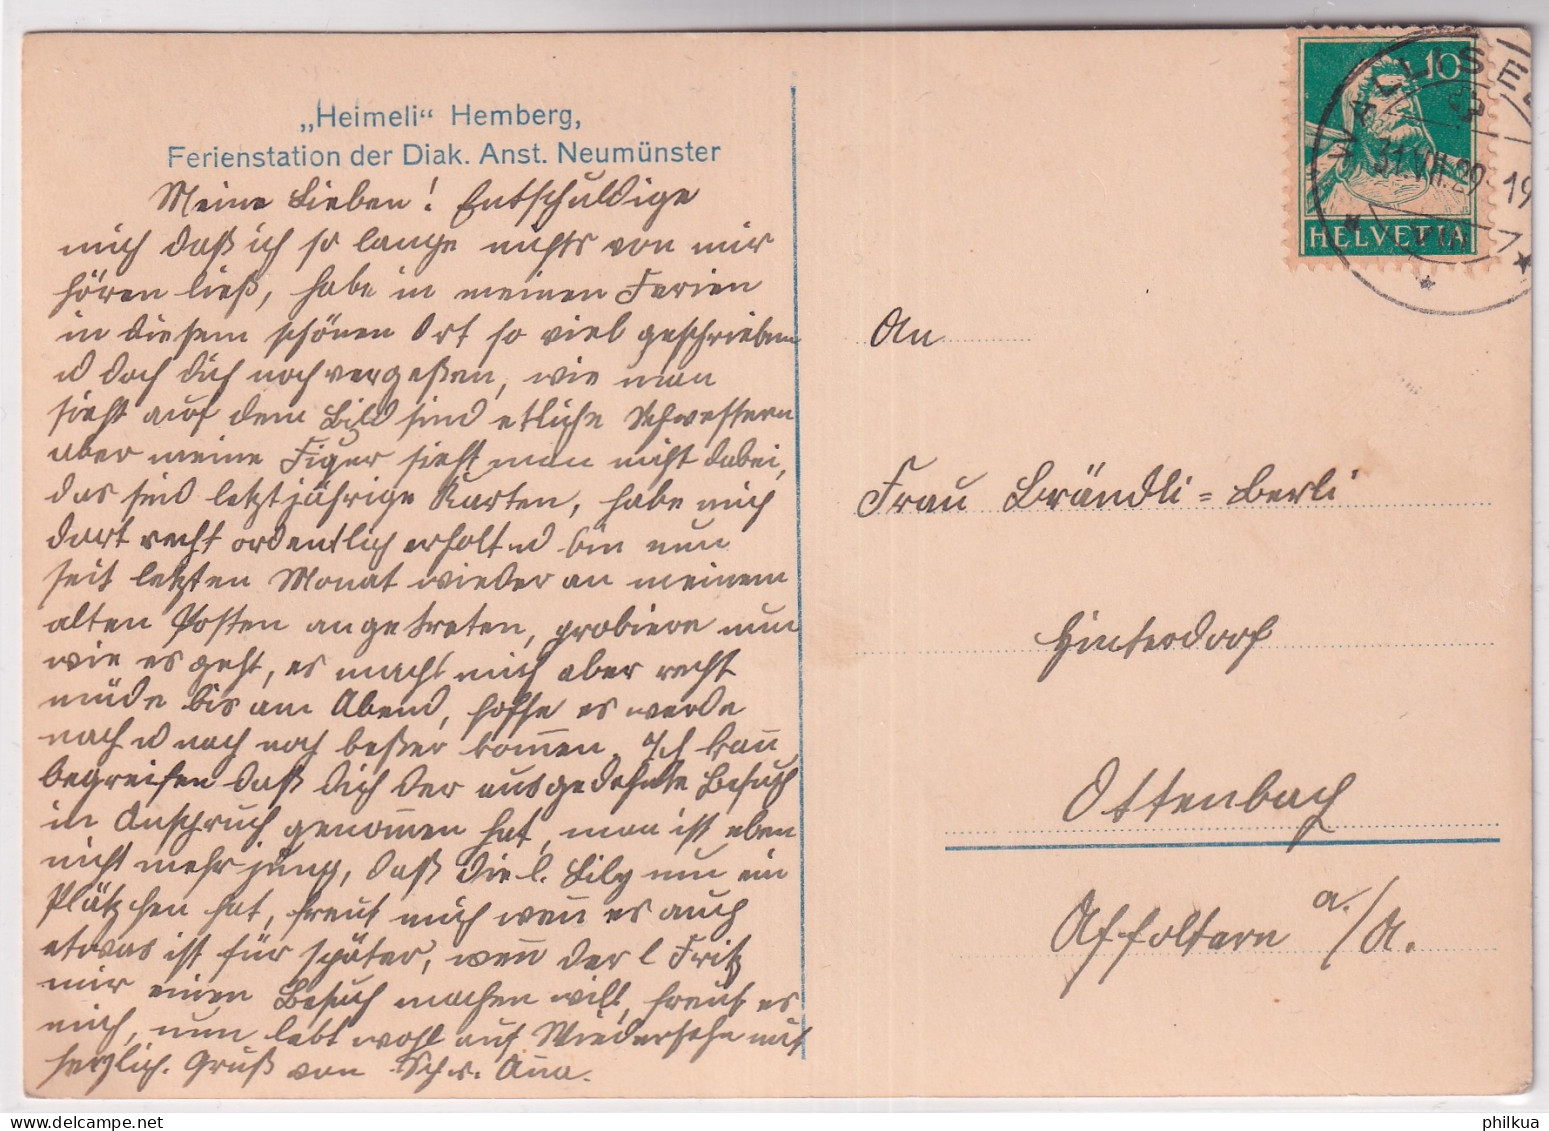 „Heimeli“ Hemberg,
Ferienstation der Diak. Anst. Neumünster
Meine Lieben! Entschuldige
mich daß ich so lange nichts von mir
hören ließ, habe in meinen Ferien
in diesem schönen Ort so viel geschrieben
u doch dich noch vergeßen, wie man
sieht auf dem Bild sind etliche Schwestern
aber meine Figer sieht man nicht dabei,
das sind letztjährige Karten, habe mich
dort recht ordentlich erholt u bin nun
seit letzten Monat wieder an meinem
alten Posten angetreten, probiere nun
wie es geht, es macht mich aber recht
müde bis am Abend, hoffe es werde
nach u nach noch beßer kom̄en. Ich kan̄
begreifen daß dich der ausgedehnte Besuch
in Anspruch genom̄en hat, man ist eben
nicht mehr jung, daß die l. Lily nun ein
Plätzchen hat, freut mich wen̄ es auch
etwas ist für später, wen̄ der l Fritz
mir einen Besuch machen will, freut es
mich, nun lebt wohl auf Wiedersehn mit
herzlich. Gruß von Schw. Anna.
10
HELVETIA
WALLISEL
31.VII.29. 19
An
Frau Brändli=Berli
Hinterdorf
Ottenbach
Affoltern a./A.
philkua